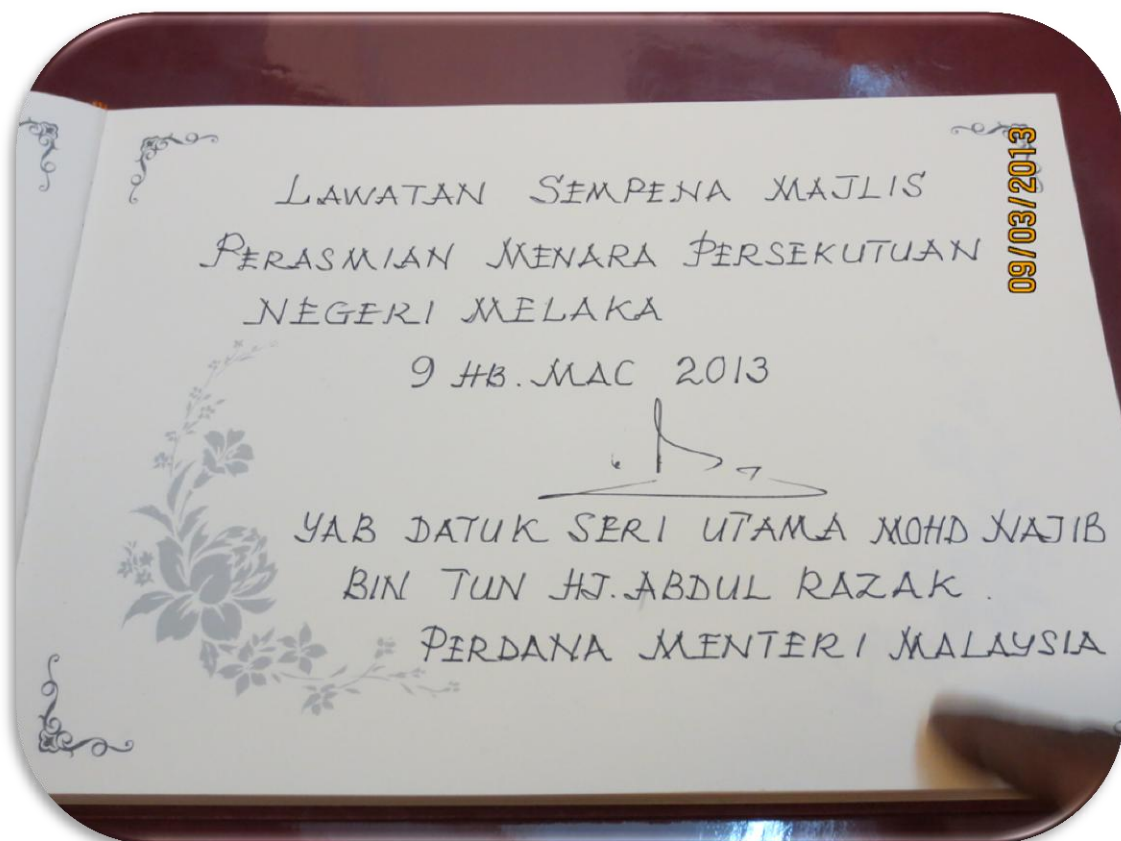 LAWATAN SEMPENA MAJLIS
PERASMIAN MENARA PERSEKUTUAN
NEGERI MELAKA
9 HB. MAC 2013
YAB DATUK SERI UTAMA MOHD NAJIB
BIN TUN HJ. ABDUL RAZAK.
PERDANA MENTERI MALAYSIA
09/03/2013